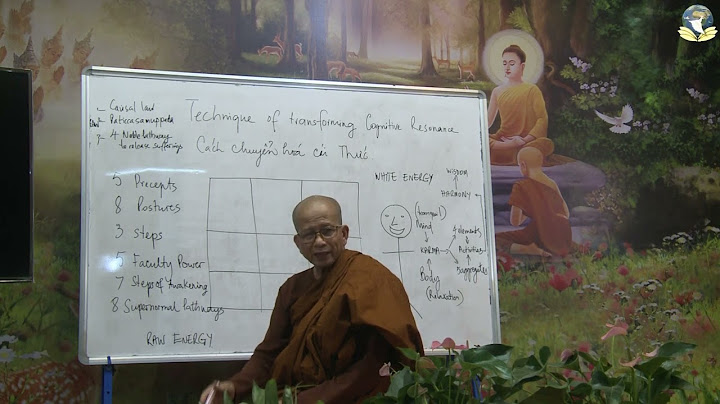 - Causal law
Paticcasamuppada
4 Noble Pathway
to release sufferings
Technique of transforming Cognitive Resonance
Cách chuyển hoá cái Thức
5 Precepts
8 Postures
3 Steps
5 Faculty Power
7 Steps of Awakening
8 Supernormal Pathways
RAW ENERGY
WHITE ENERGY
WISDOM
HARMONY
(tranquil)
Mind
KARMA
4 elements
Activities
5 aggregates
Body
(Relaxation)